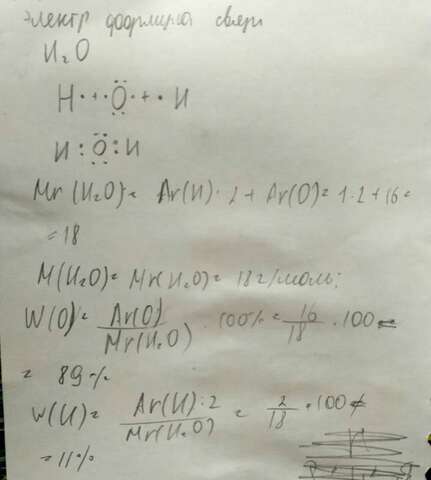 электр формула связи
H₂O
H· + ·Ö· + ·H
H:Ö:H
Mr(H₂O) = Ar(H)·2 + Ar(O) = 1·2 + 16 =
= 18
M(H₂O) = Mr(H₂O) = 18 г/моль;
W(O) = Ar(O)/Mr(H₂O) · 100% = 16/18 · 100 =
= 89%
W(H) = Ar(H)·2/Mr(H₂O) = 2/18 · 100
= 11%